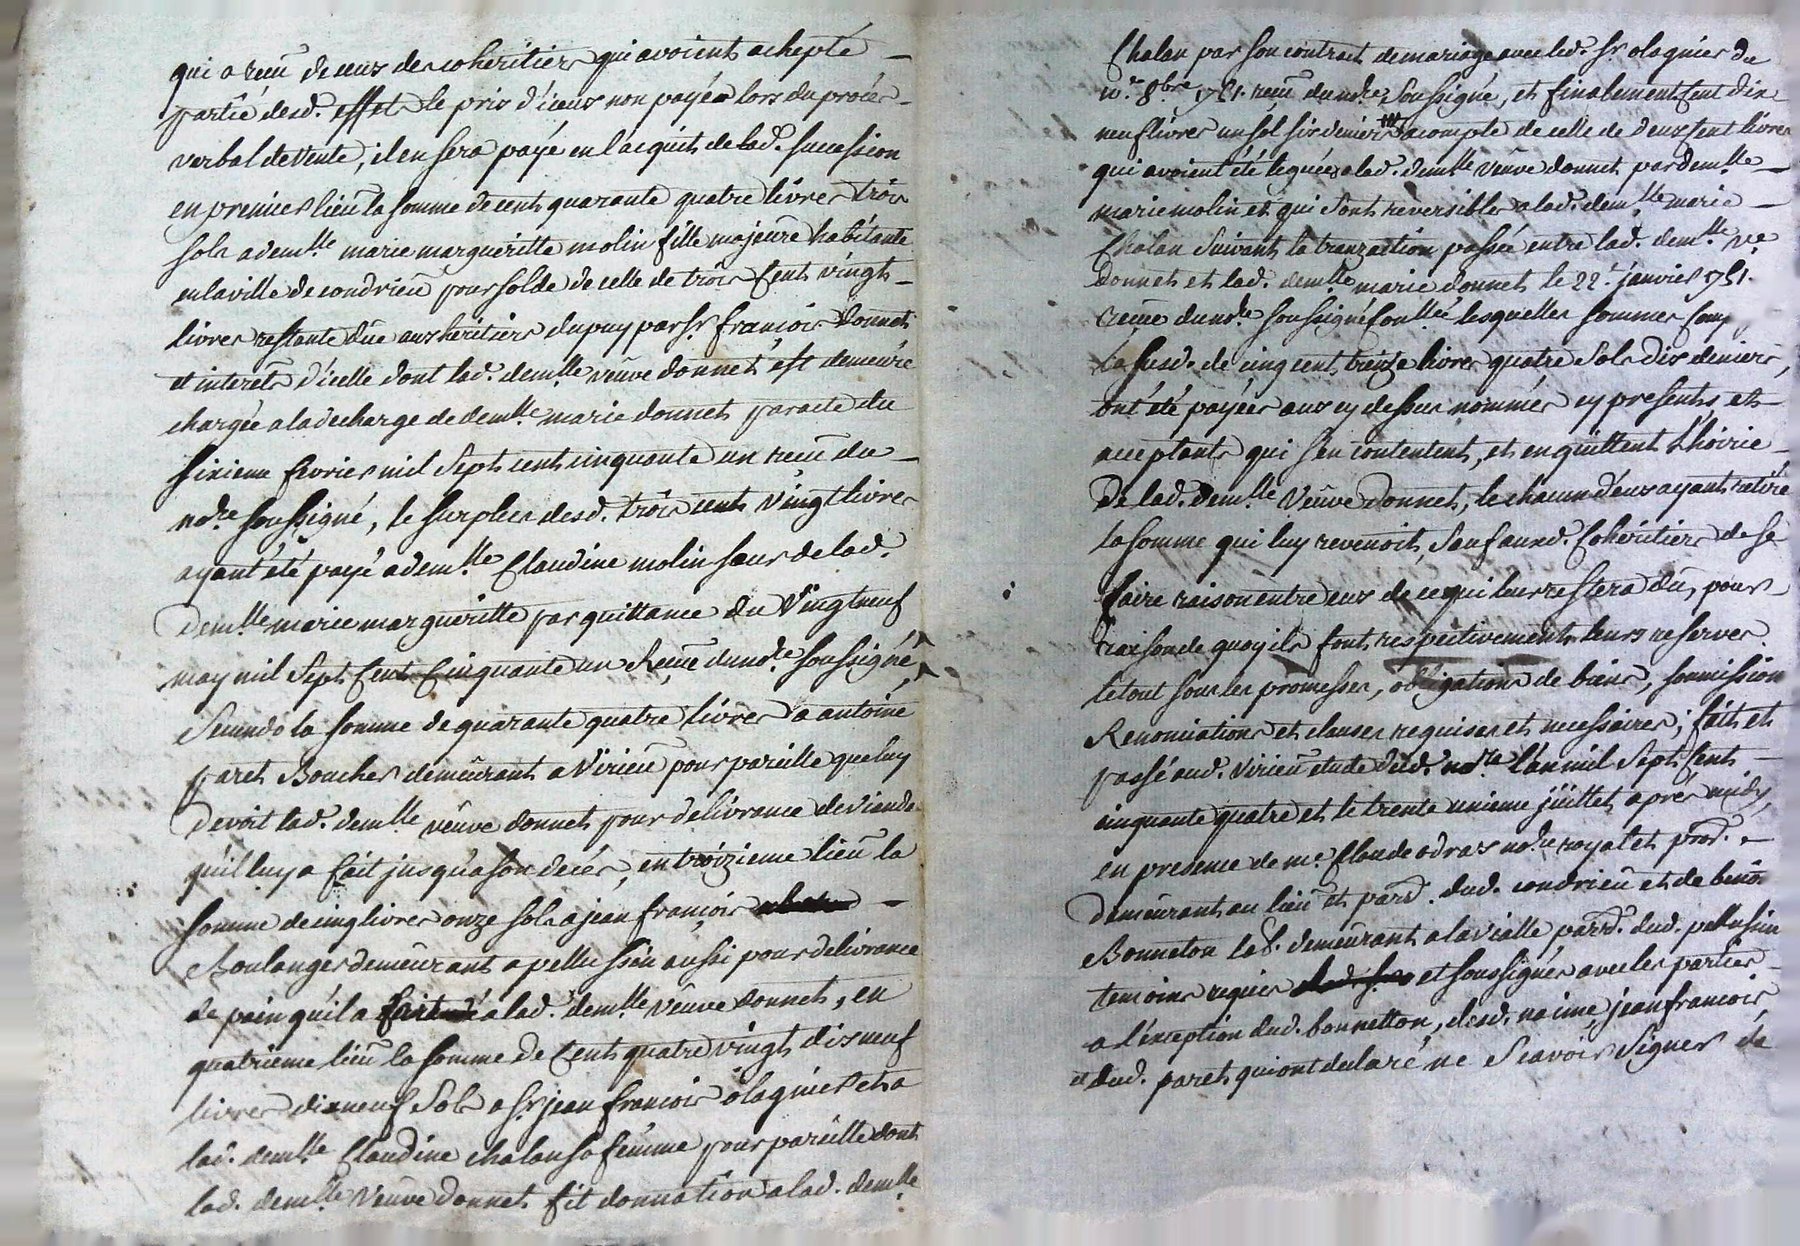 qui a reçu de ceux des coheritiers qui avoient achepté
partie desd. effets le prix d'iceux non payéz lors du procés
verbal de vente, il en sera payé en l'acquit de lad. succession
en premier lieu la somme de cent quarante quatre livres trois
sols a demlle marie margueritte molin fille majeure habitante
en la ville de condrieu pour solde de celle de trois cent vingt
livres restante düe aux heritiers dupuy par sr françois donnet
et interets d'icelle dont lad. demlle veuve donnet est demeurée
chargée a la decharge de demlle marie donnet par acte du
sixieme fevrier mil sept cent cinquante un reçu du
nore soussigné, le surplus desd. trois cent vingt livres
ayant été payé a demlle Claudine molin sœur de lad.
demlle marie margueritte par quittance du vingt neuf
may mil sept cent cinquante un reçüe dud. nore soussigné,
secundo la somme de quarante quatre livres a antoine
paret Boucher demeurant a virieu pour pareille que luy
devoit lad. demlle veuve donnet pour delivrance de viande
qu'il luy a fait jusqu'a son decés, en troizieme lieu la
somme de cinq livres onze sols a jean françois
Boulanger demeurant a pellussien aussi pour delivrance
de pain qu'il a fait a lad. demlle veuve donnet, en
quatrieme lieu la somme de cent quatre vingt dix neuf
livres dix neuf sols a sr jean françois olagnier et a
lad. demlle Claudine chalan sa femme pour pareille dont
lad. demlle veuve donnet fit donnation a lad. demlle
Chalan par son contract de mariage avec led. sr olagnier du
8bre 1751. reçu dud. nore soussigné, et finalement cent dix
neuf livres un sol six deniers acompte de celle de deux cent livres
qui avoient été leguées a lad. demlle veuve donnet par demlle
marie molin et qui sont reversibles a lad. demlle marie
Chalan suivant la tranzaction passée entre lad. demlle vve
donnet et lad. demlle marie donnet le 22e. janvier 1751.
reçüe dud. nore soussigné lesquelles sommes
la susd. de cinq cent treize livres quatre sols dix deniers,
ont été payées aux cy dessus nommés cy presents et
acceptants qui s'en contentent, et en quittent l'hoirie
de lad. demlle veuve donnet, le chacun d'eux ayant retiré
la somme qui luy revenoit, sauf auxd. cohéritiers de se
faire raison entre eux de ce qui leur restera dû, pour
raison de quoy ils font respectivement leurs reserves
le tout sous les promesses, obligations de biens, soumission
Renonciations et clauses requises et necessaires; fait et
passé aud. virieu etude dud. nore l'an mil sept cent
cinquante quatre et le trente unieme jüillet aprés midy,
en presence de me. Claude odras nore royal et procr.
demeurant au lieu et parse. dud. condrieu et de benoit
Bonneton lab. demeurant a la vialle parse. dud. pellussin
temoins requis et soussignés avec les parties
a l'exception dud. bonnetton, desd. naime, jean françois,
et dud. paret qui ont declaré ne scavoir signer de